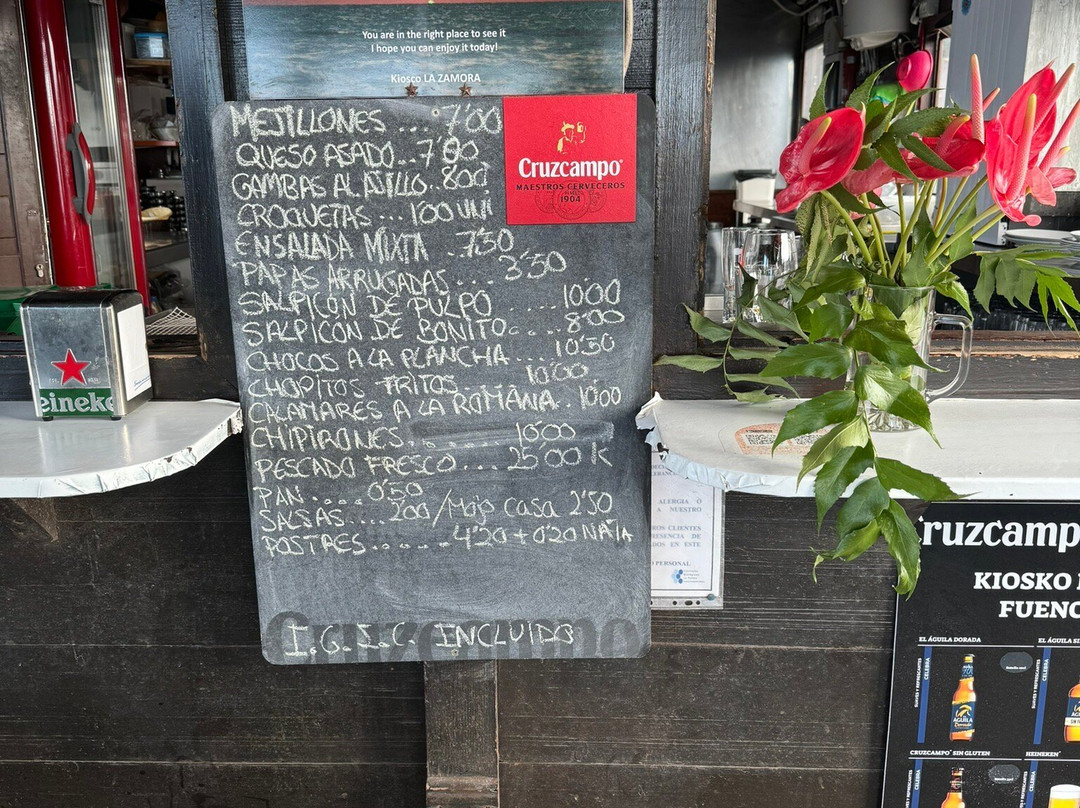 You are in the right place to see it
I hope you can enjoy it today!
Kiosco LA ZAMORA
MEJILLONES ... 7'00
QUESO ASADO .. 7'00
GAMBAS AL AJILLO .. 8'00
CROQUETAS ... 1'00 UNI
ENSALADA MIXTA .. 7'30
PAPAS ARRUGADAS ... 3'50
SALPICÓN DE PULPO ... 10'00
SALPICÓN DE BONITO ... 8'00
CHOCOS A LA PLANCHA .... 10'50
CHOPITOS FRITOS 10'00
CALAMARES A LA ROMANA . 10'00
CHIPIRONES ....... 10'00
PESCADO FRESCO .... 25'00 K
PAN .... 0'50
SALSAS .... 2'00 / Mojo casa 2'50
POSTRES ...... 4'20 + 0'20 NATA
I.G.I.C. INCLUIDO
Cruzcampo
Cruzcampo
MAESTROS CERVECEROS
1904
eineke
ALERGIA O
A NUESTRO
OS CLIENTES
ESENCIA DE
OS EN ESTE
PERSONAL
ruzcampo
KIOSKO
FUENC
EL ÁGUILA DORADA
EL ÁGUILA SI
CELEBRA
CELEBRA
AGUILA
CRUZCAMPO SIN GLUTEN
HEINEKEN